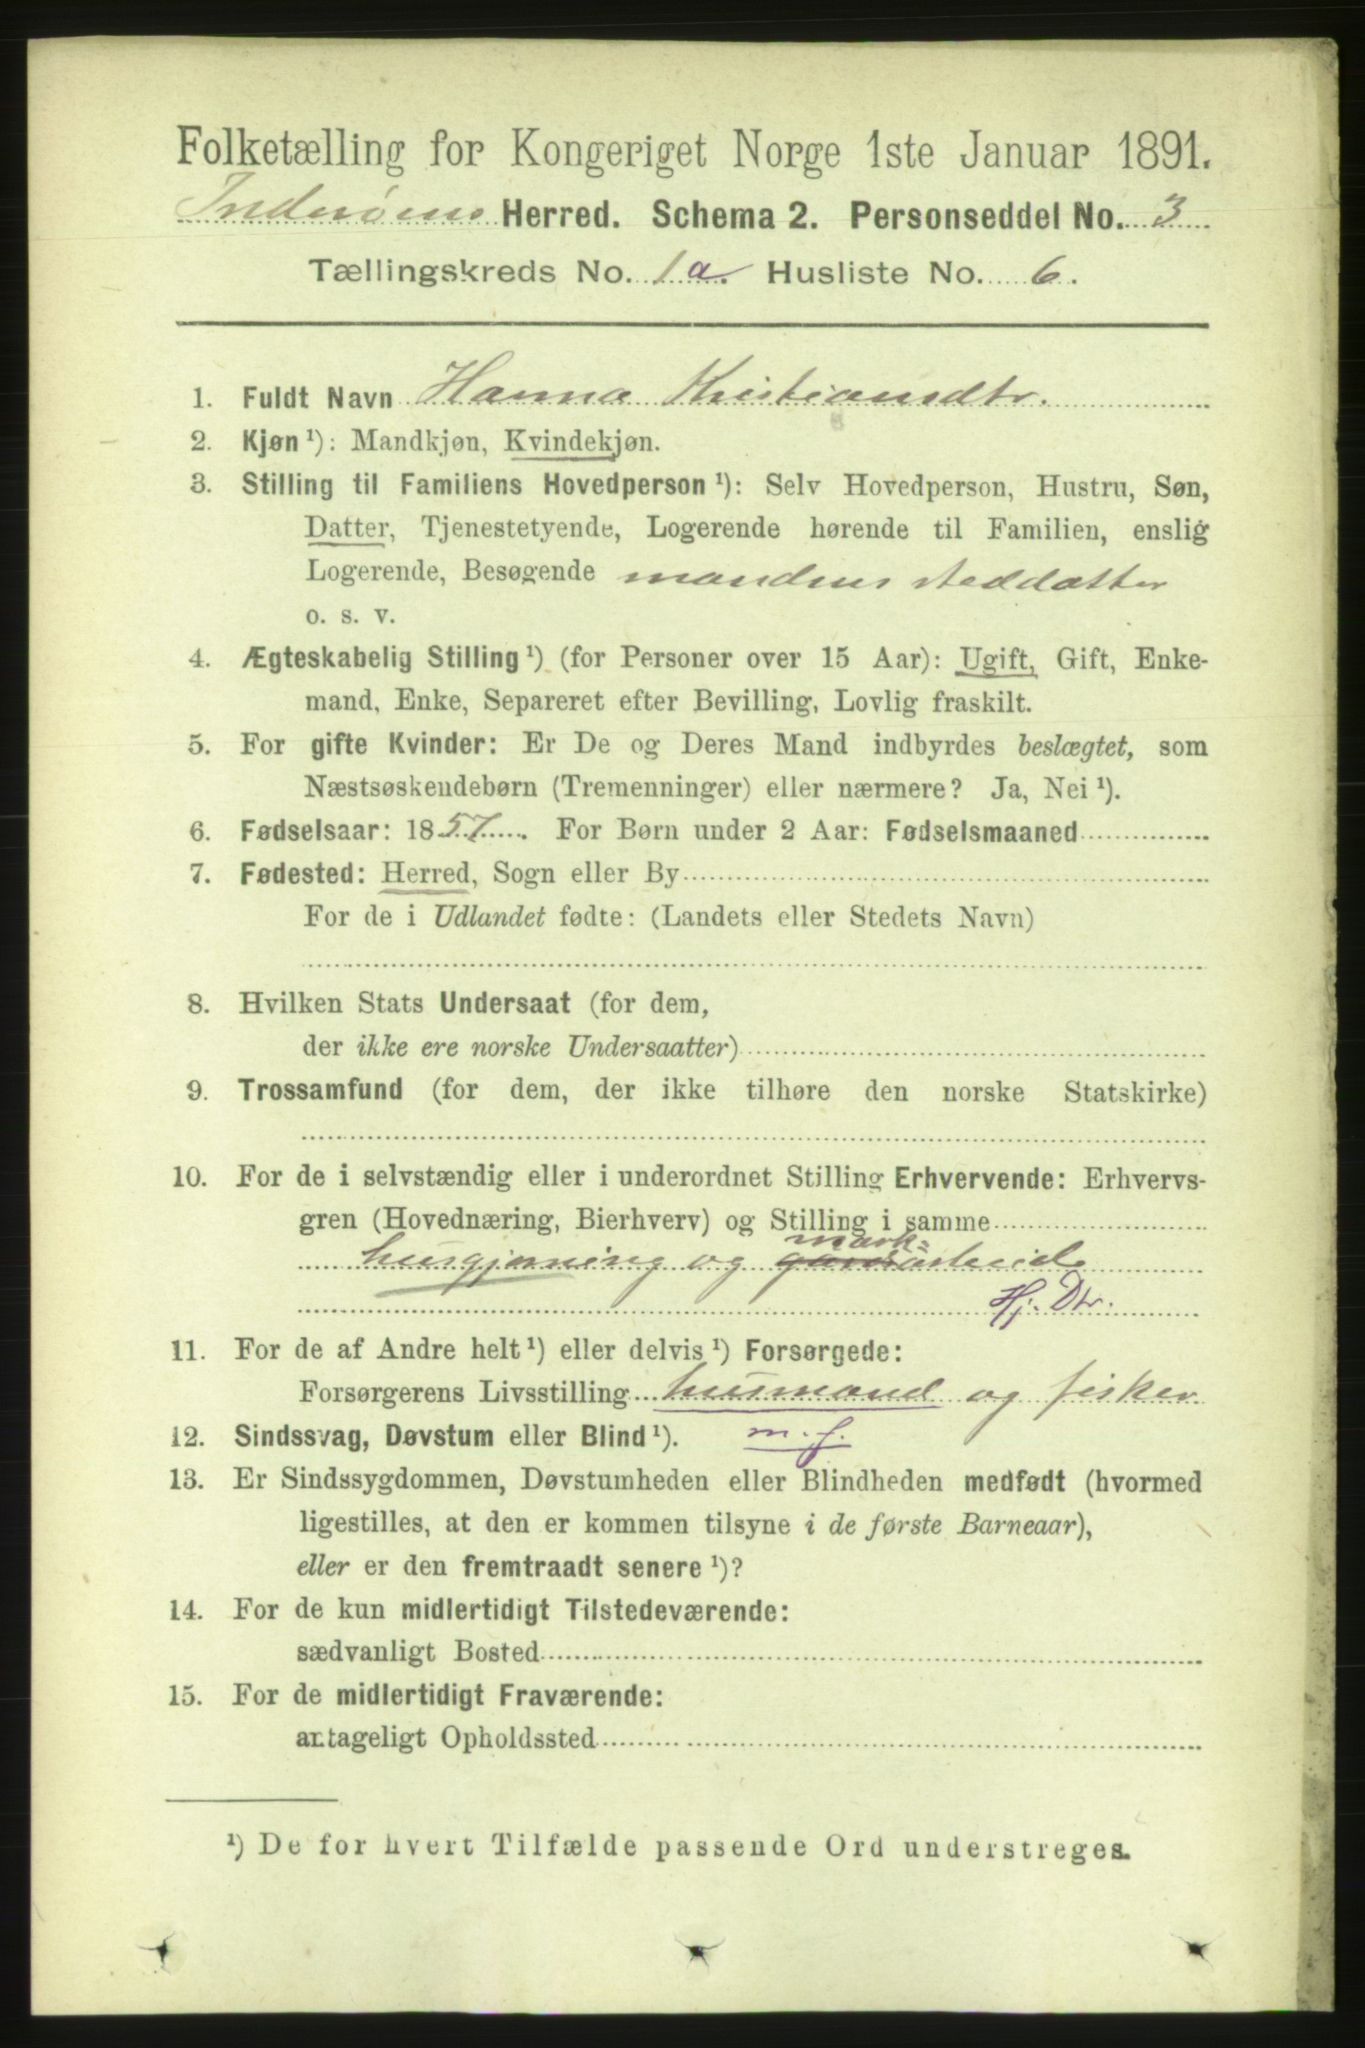 Folketælling for Kongeriget Norge 1ste Januar 1891.
Inderøens Herred. Schema 2. Personseddel No. 3
Tællingskreds No. 1 a. Husliste No. 6.
1. Fuldt Navn Hanna Kristiansdtr.
2. Kjøn ¹): Mandkjøn, Kvindekjøn.
3. Stilling til Familiens Hovedperson ¹): Selv Hovedperson, Hustru, Søn,
Datter, Tjenestetyende, Logerende hørende til Familien, enslig
Logerende, Besøgende mandens steddatter
o. s. v.
4. Ægteskabelig Stilling ¹) (for Personer over 15 Aar): Ugift, Gift, Enke-
mand, Enke, Separeret efter Bevilling, Lovlig fraskilt.
5. For gifte Kvinder: Er De og Deres Mand indbyrdes beslægtet, som
Næstsøskendebørn (Tremenninger) eller nærmere? Ja, Nei ¹).
6. Fødselsaar: 1857. For Børn under 2 Aar: Fødselsmaaned
7. Fødested: Herred, Sogn eller By
For de i Udlandet fødte: (Landets eller Stedets Navn)
8. Hvilken Stats Undersaat (for dem,
der ikke ere norske Undersaatter)
9. Trossamfund (for dem, der ikke tilhøre den norske Statskirke)
10. For de i selvstændig eller i underordnet Stilling Erhvervende: Erhvervs-
gren (Hovednæring, Bierhverv) og Stilling i samme
mark-
husgjerning og gaardsarbeide
Hj. Dtr.
11. For de af Andre helt ¹) eller delvis ¹) Forsørgede:
Forsørgerens Livsstilling husmand og fisker
12. Sindssvag, Døvstum eller Blind ¹). m. f.
13. Er Sindssygdommen, Døvstumheden eller Blindheden medfødt (hvormed
ligestilles, at den er kommen tilsyne i de første Barneaar),
eller er den fremtraadt senere ¹)?
14. For de kun midlertidigt Tilstedeværende:
sædvanligt Bosted
15. For de midlertidigt Fraværende:
antageligt Opholdssted
¹) De for hvert Tilfælde passende Ord understreges.